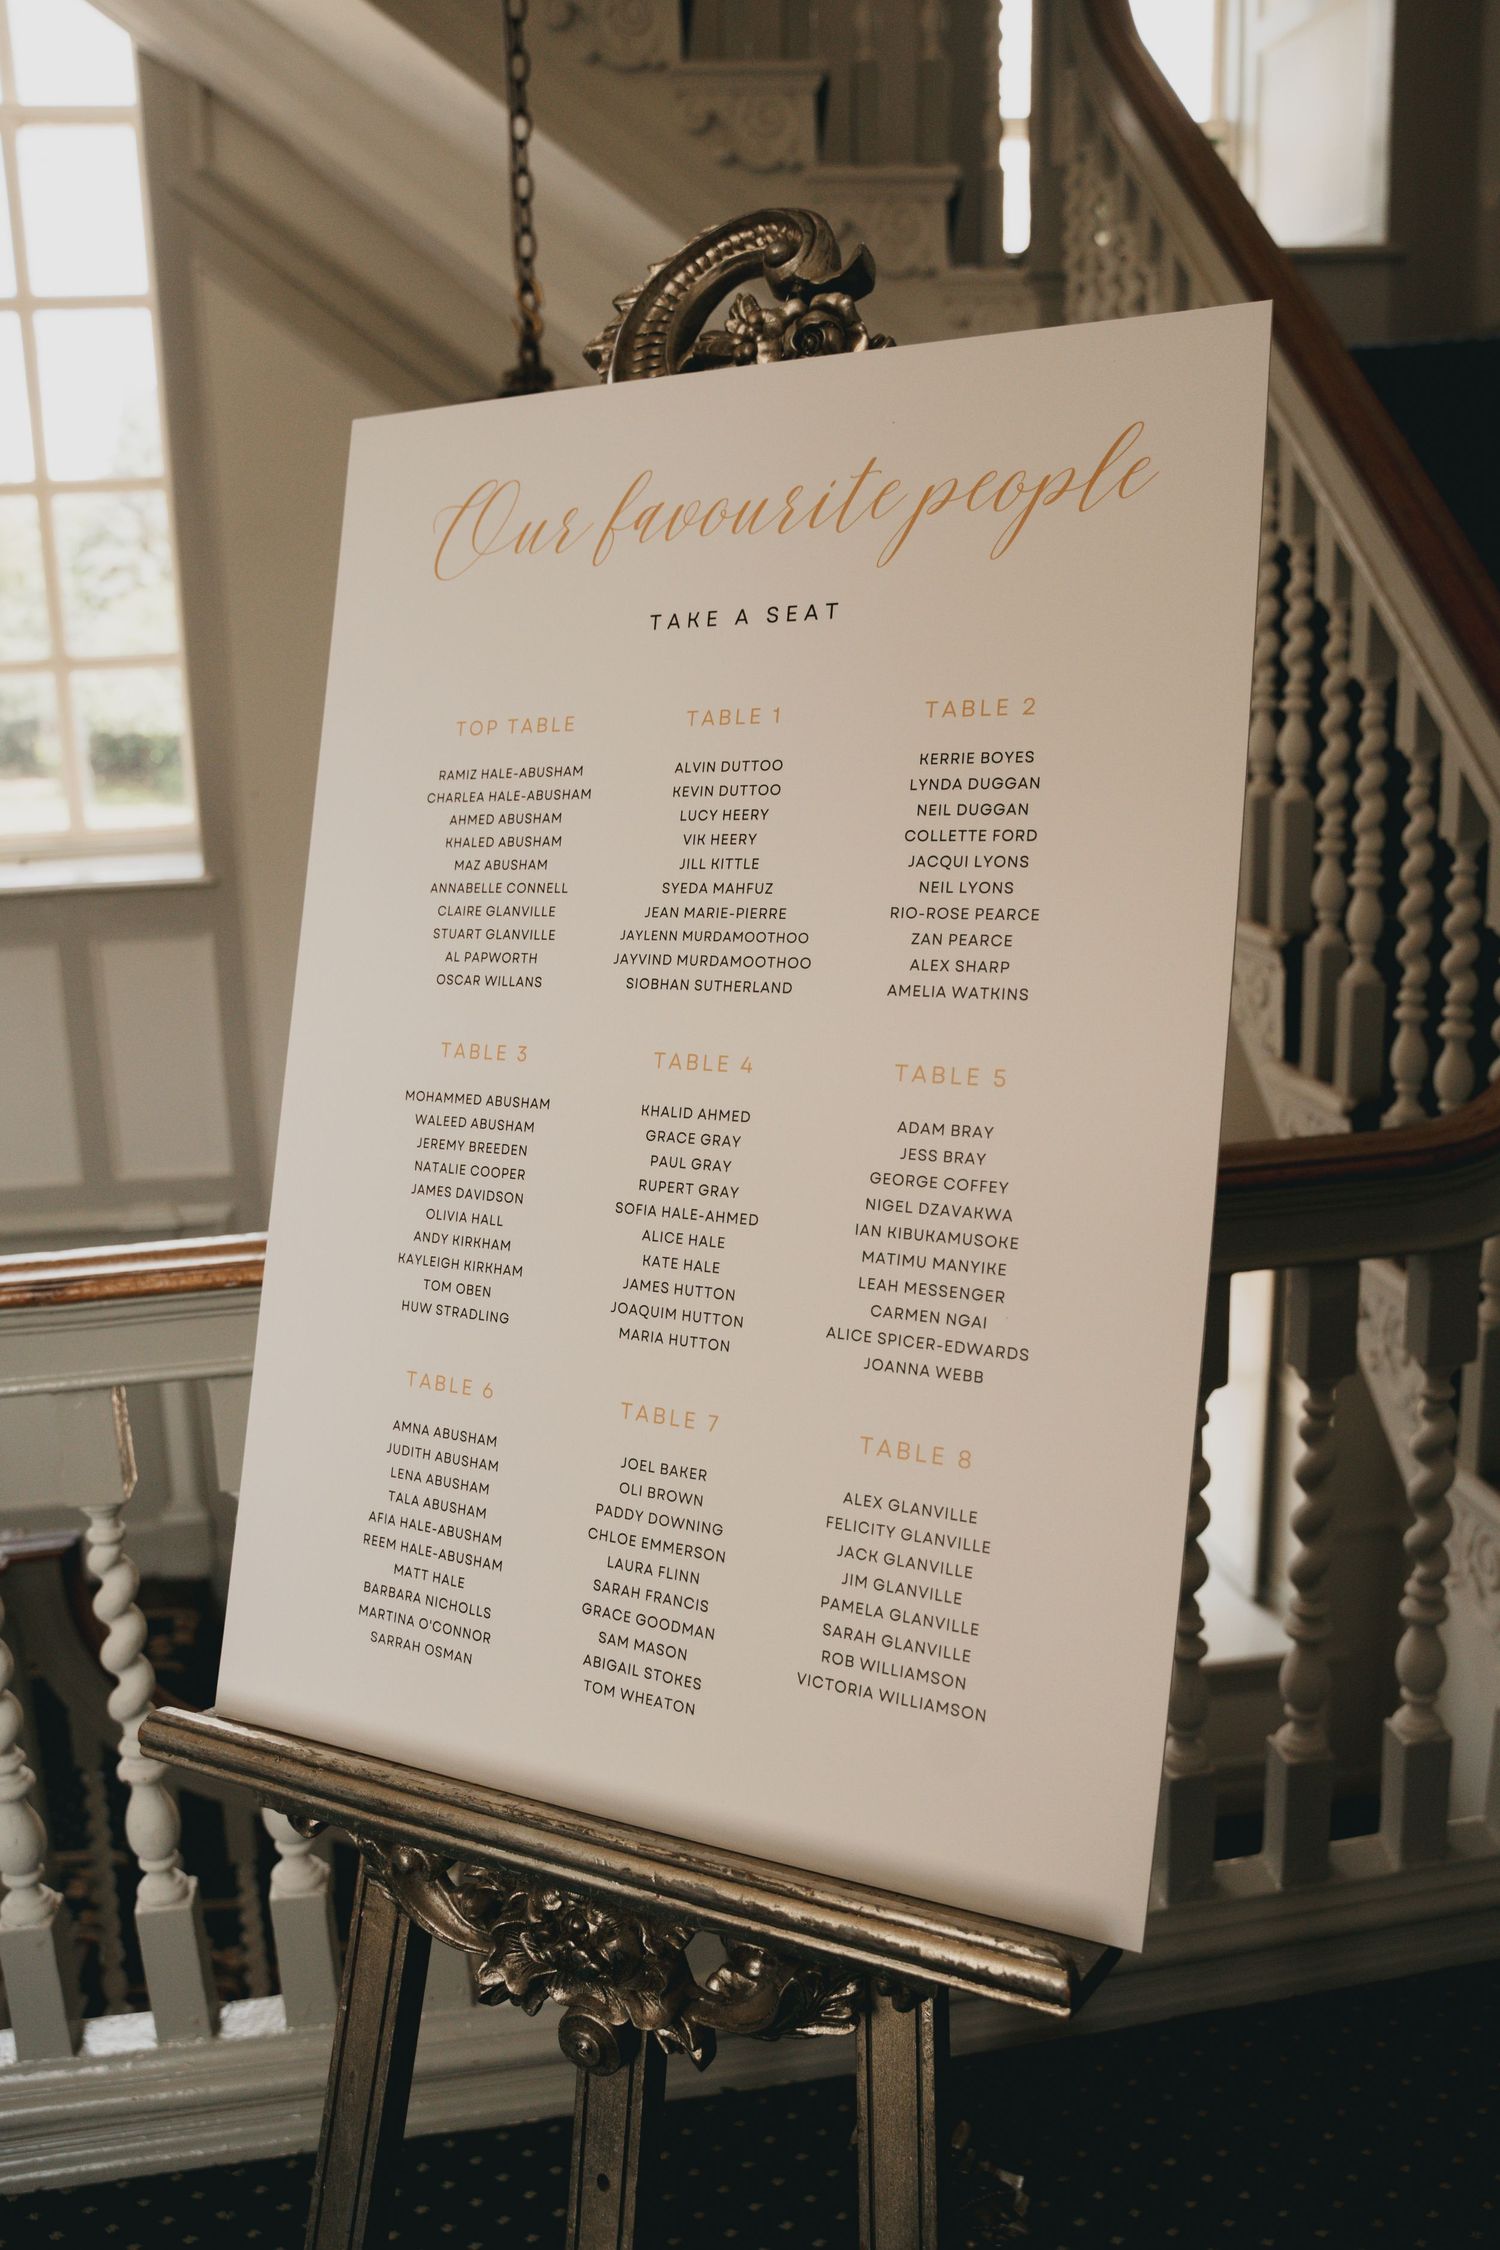 Our favourite people
TAKE A SEAT
TOP TABLE
RAMIZ HALE-ABUSHAM
CHARLEA HALE-ABUSHAM
AHMED ABUSHAM
KHALED ABUSHAM
MAZ ABUSHAM
ANNABELLE CONNELL
CLAIRE GLANVILLE
STUART GLANVILLE
AL PAPWORTH
OSCAR WILLANS
TABLE 1
ALVIN DUTTOO
KEVIN DUTTOO
LUCY HEERY
VIK HEERY
JILL KITTLE
SYEDA MAHFUZ
JEAN MARIE-PIERRE
JAYLENN MURDAMOOTHOO
JAYVIND MURDAMOOTHOO
SIOBHAN SUTHERLAND
TABLE 2
KERRIE BOYES
LYNDA DUGGAN
NEIL DUGGAN
COLLETTE FORD
JACQUI LYONS
NEIL LYONS
RIO-ROSE PEARCE
ZAN PEARCE
ALEX SHARP
AMELIA WATKINS
TABLE 3
MOHAMMED ABUSHAM
WALEED ABUSHAM
JEREMY BREEDEN
NATALIE COOPER
JAMES DAVIDSON
OLIVIA HALL
ANDY KIRKHAM
KAYLEIGH KIRKHAM
TOM OBEN
HUW STRADLING
TABLE 4
KHALID AHMED
GRACE GRAY
PAUL GRAY
RUPERT GRAY
SOFIA HALE-AHMED
ALICE HALE
KATE HALE
JAMES HUTTON
JOAQUIM HUTTON
MARIA HUTTON
TABLE 5
ADAM BRAY
JESS BRAY
GEORGE COFFEY
NIGEL DZAVAKWA
IAN KIBUKAMUSOKE
MATIMU MANYIKE
LEAH MESSENGER
CARMEN NGAI
ALICE SPICER-EDWARDS
JOANNA WEBB
TABLE 6
AMNA ABUSHAM
JUDITH ABUSHAM
LENA ABUSHAM
TALA ABUSHAM
AFIA HALE-ABUSHAM
REEM HALE-ABUSHAM
MATT HALE
BARBARA NICHOLLS
MARTINA O'CONNOR
SARRAH OSMAN
TABLE 7
JOEL BAKER
OLI BROWN
PADDY DOWNING
CHLOE EMMERSON
LAURA FLINN
SARAH FRANCIS
GRACE GOODMAN
SAM MASON
ABIGAIL STOKES
TOM WHEATON
TABLE 8
ALEX GLANVILLE
FELICITY GLANVILLE
JACK GLANVILLE
JIM GLANVILLE
PAMELA GLANVILLE
SARAH GLANVILLE
ROB WILLIAMSON
VICTORIA WILLIAMSON